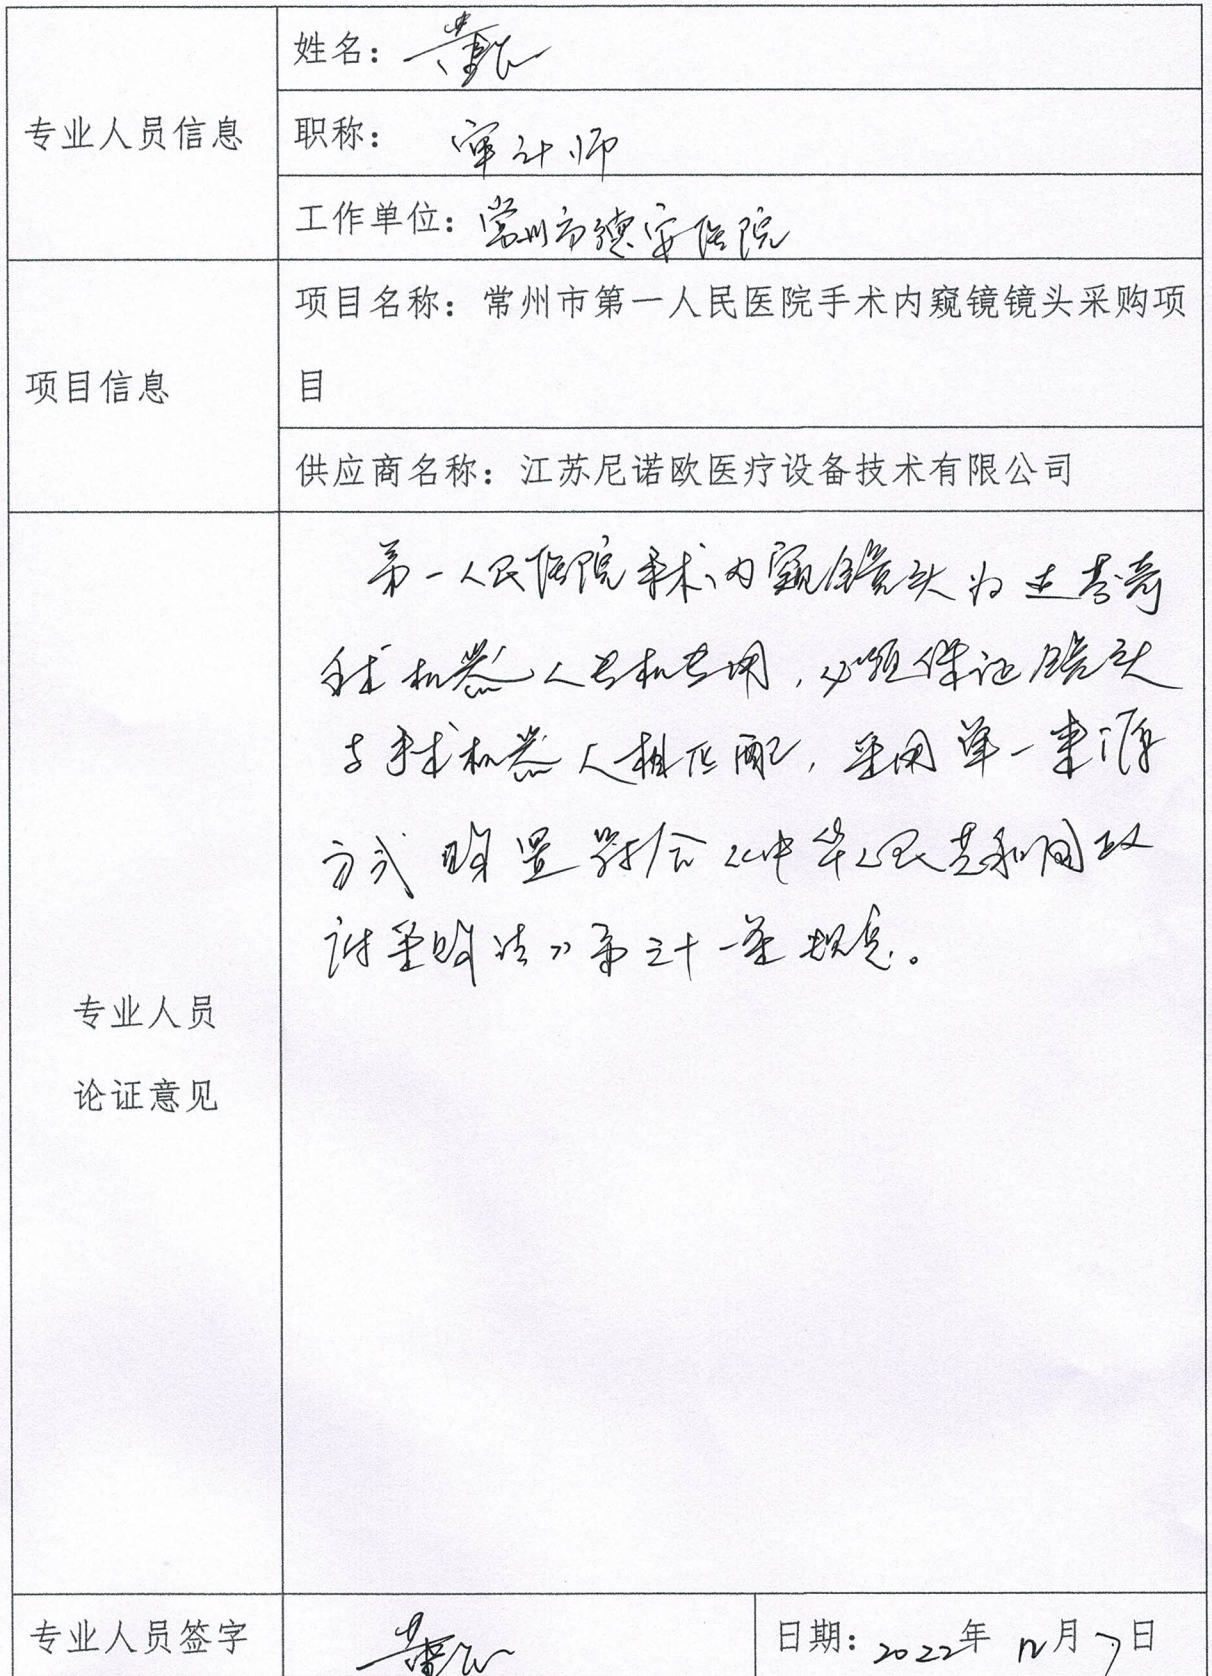 专业人员信息
姓名：
职称：审计师
工作单位：常州市德安医院
项目信息
项目名称：常州市第一人民医院手术内窥镜镜头采购项
目
供应商名称：江苏尼诺欧医疗设备技术有限公司
专业人员
论证意见
第一人民医院手术内窥镜头为达芬奇
手术机器人专机专用，必须保证镜头
与手术机器人相匹配，采用单一来源
方式购置符合《中华人民共和国政
府采购法》第三十一条规定。
专业人员签字
日期：2022年12月7日